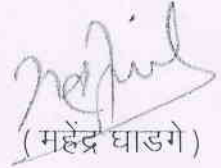 ( महेंद्र घाडगे )